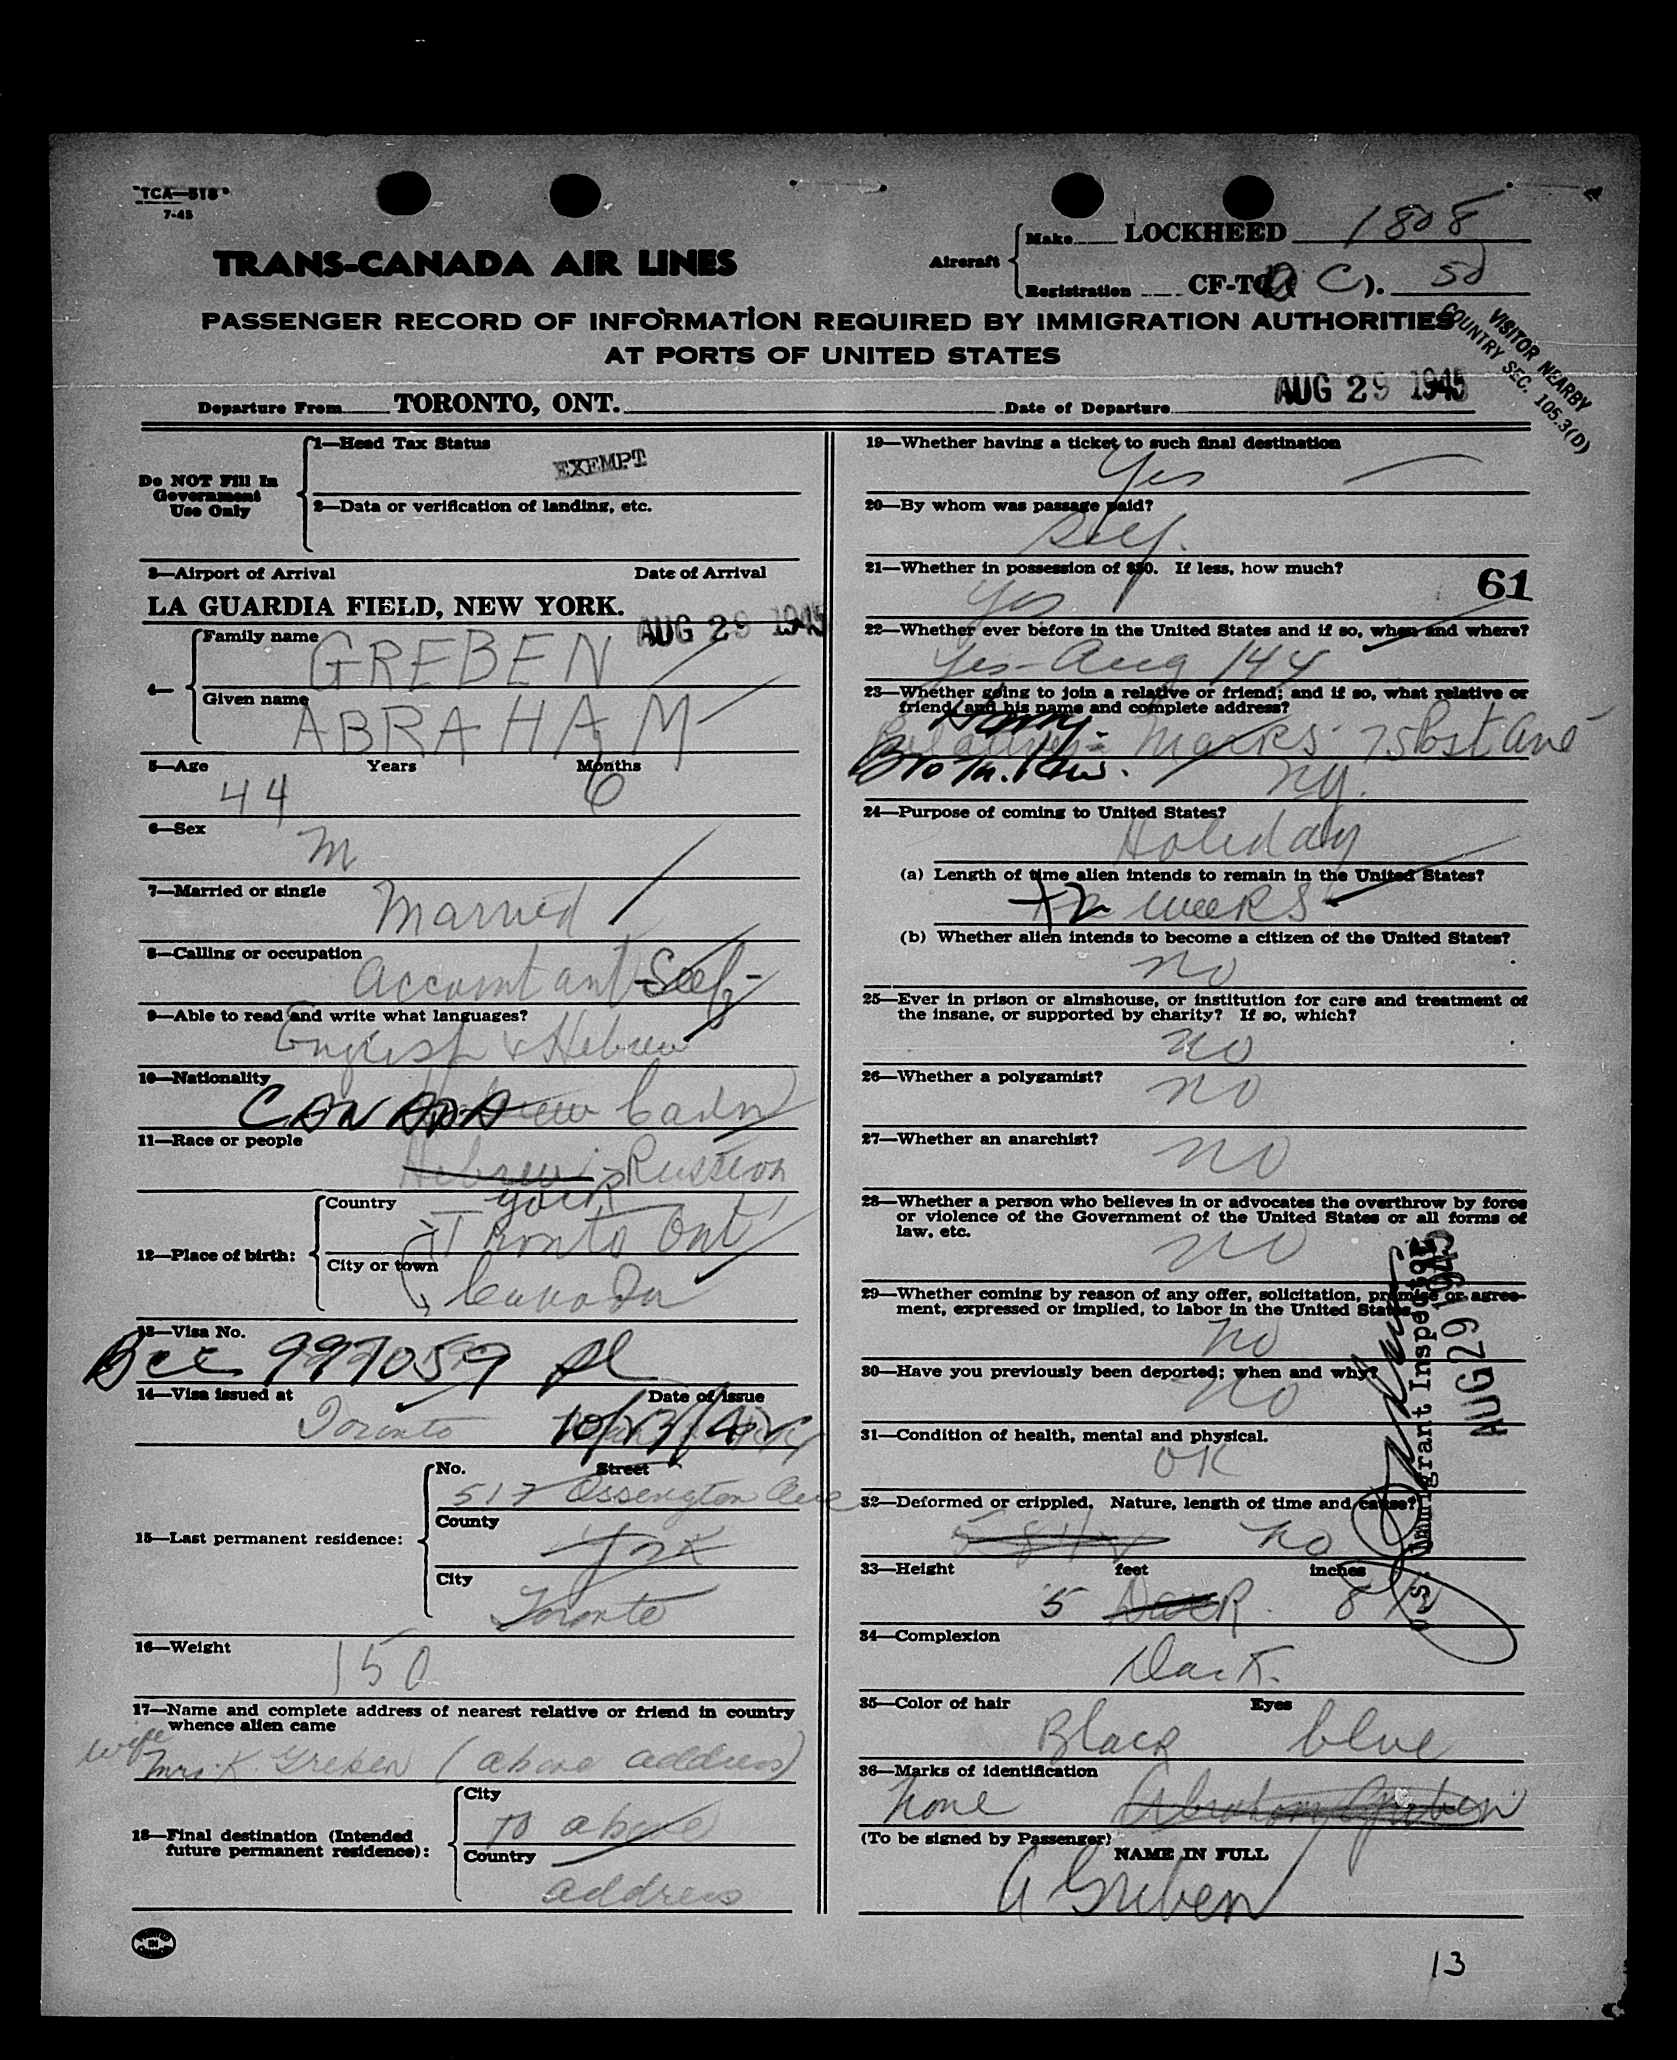 "TCA—518"
7-45
TRANS-CANADA AIR LINES
Aircraft
Make LOCKHEED 1808
Registration CF-TC( C ). 50
PASSENGER RECORD OF INFORMATION REQUIRED BY IMMIGRATION AUTHORITIES
AT PORTS OF UNITED STATES
VISITOR NEARBY
COUNTRY SEC. 105.3(D)
Departure From TORONTO, ONT. Date of Departure AUG 29 1945
Do NOT Fill In
Government
Use Only
1—Head Tax Status
EXEMPT
2—Data or verification of landing, etc.
3—Airport of Arrival Date of Arrival
LA GUARDIA FIELD, NEW YORK. AUG 29 1945
4—
Family name GREBEN
Given name ABRAHAM
5—Age Years Months
44 6
6—Sex
M
7—Married or single
Married
8—Calling or occupation
Accountant -Self-
9—Able to read and write what languages?
English & Hebrew
10—Nationality
CANADA Hebrew Cadn
11—Race or people
Hebrew - Russian
12—Place of birth:
Country
York
Toronto Ont
City or town
Canada
13—Visa No.
Bcc 997059
14—Visa issued at Date of issue
Toronto 10/23/42
15—Last permanent residence:
No. Street
517 Ossington Ave
County
York
City
Toronto
16—Weight
150
17—Name and complete address of nearest relative or friend in country
whence alien came
wife
Mrs. K. Greben (above address)
18—Final destination (Intended
future permanent residence):
City
To above
Country
address
19—Whether having a ticket to such final destination
Yes
20—By whom was passage paid?
Self.
21—Whether in possession of $50. If less, how much?
Yes 61
22—Whether ever before in the United States and if so, when and where?
Yes - Aug /44
23—Whether going to join a relative or friend; and if so, what relative or
friend, and his name and complete address?
Harry
Relatives - Marks 75 Post Ave
Bro in law. NY.
24—Purpose of coming to United States?
Holiday
(a) Length of time alien intends to remain in the United States?
2 weeks
(b) Whether alien intends to become a citizen of the United States?
no
25—Ever in prison or almshouse, or institution for care and treatment of
the insane, or supported by charity? If so, which?
no
26—Whether a polygamist?
no
27—Whether an anarchist?
no
28—Whether a person who believes in or advocates the overthrow by force
or violence of the Government of the United States or all forms of
law, etc.
no
29—Whether coming by reason of any offer, solicitation, promise or agree-
ment, expressed or implied, to labor in the United States.
no
30—Have you previously been deported; when and why?
no
31—Condition of health, mental and physical.
OK
32—Deformed or crippled. Nature, length of time and cause?
5 8 1/2 no
33—Height feet inches
5 Dark 8 1/2
U.S. Immigrant Inspector
AUG 29 1945
34—Complexion
Dark.
35—Color of hair Eyes
Black blue
36—Marks of identification
none Abraham Greben
(To be signed by Passenger)
NAME IN FULL
A Greben
13